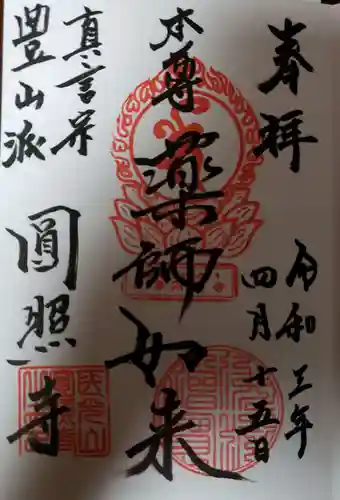 奉拝
令和三年
四月十五日
本尊
薬師如来
真言宗
豊山派
圓照寺